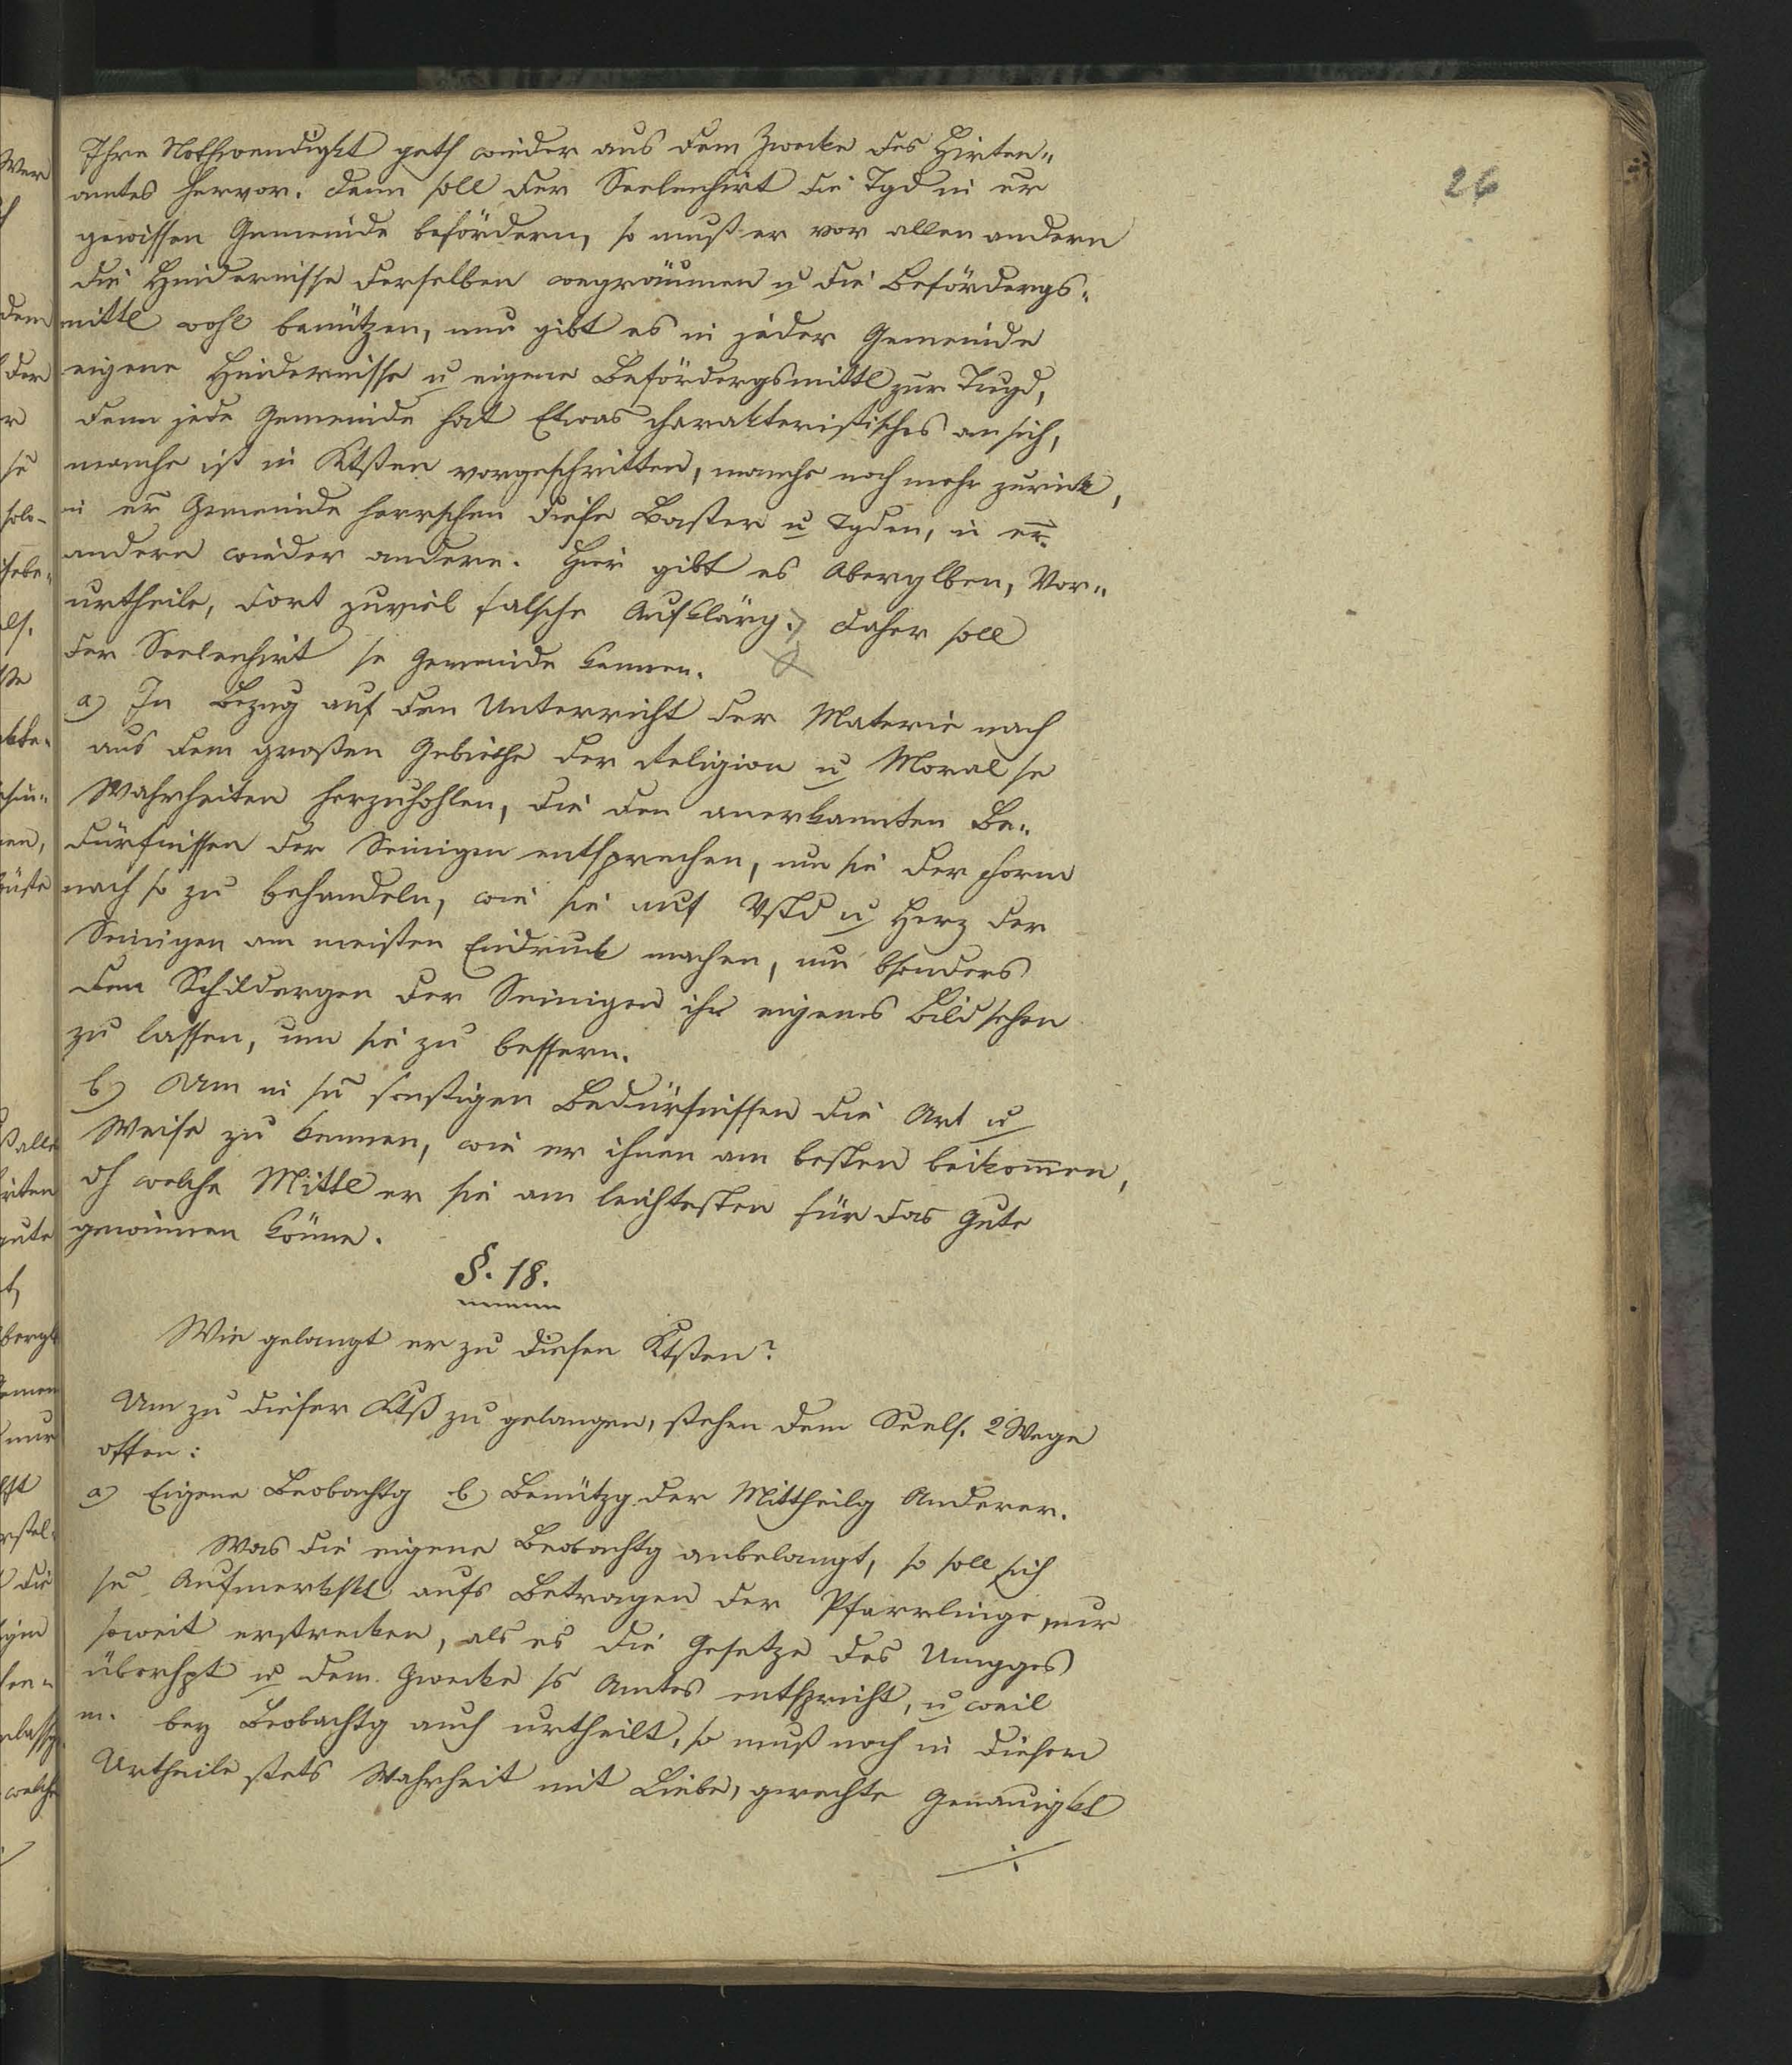 26
Ihre Nothwendigkt geth wieder aus dem Zwecke des Hirten„
amtes hervor. Denn soll der Seelenhirt die Tgd in er
gewissen Gemeinde befördern, so muß er vor allen andern
die Hindernisse derselben wegräumen u die Befördergs„
mittl wohl benützen, nun gibt es in jeder Gemeinde
eigene Hindernisse u eigene Befördergsmittl zur Tugd,
denn jede Gemeinde hat Etwas charakteristisches an sich,
manche ist in Ktßen vorgeschritten, manche noch mehr zurück,
in er Gemeinde herrschen diese Laster u Tgden, in er
andern wieder andere. Hier gibt es Aberglben, Vor„
urtheile, dort zuviel falsche Aufklärg. daher soll
der Seelenhirt se Gemeinde kennen.
a) In Bezug auf den Unterricht der Materie nach
aus dem großen Gebiethe der Religion u Moral se
Wahrheiten herzuhohlen, die den anerkannten Be„
dürfnissen der Seinigen entsprechen, um sie der Form
nach so zu behandeln, wie sie auf Vstd u Herz der
Seinigen am meisten Eindruck machen, um bsonders
den Schildergen der Seinigen ihr eigenes Bild sehen
zu lassen, um sie zu bessern.
b) Um in sn sonstigen Bedürfnissen die Art u
Weise zu kennen, wie er ihnen am besten beikommen,
dh welche Mittl er sie am leichtesten für das Gute
gewinnen könne.
§. 18.
Wie gelangt er zu diesen Ktßen?
Um zu dieser Ktß zu gelangen, stehen dem Seels. 2 Wege
offen:
a) Eigene Beobachtg b) Benützg der Mittheilg Anderer.
Was die eigene Beobachtg anbelangt, so soll sich
se Aufmerkskt aufs Betragen der Pfarrlinge nur
soweit erstrecken, als es die Gesetze des Umgges
überhpt u dem Zwecke ss Amtes entspricht, u weil
m. bey Beobachtg auch urtheilt, so muß noch in diesem
Urtheile stets Wahrheit mit Liebe, gerechte Genauigkt